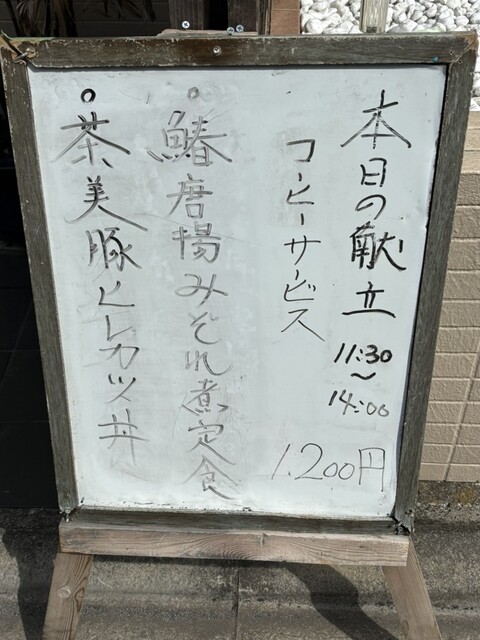 本日の献立
11:30
〜
14:00
コーヒーサービス
1.200円
○鰆唐揚みぞれ煮定食
○茶美豚ヒレカツ丼